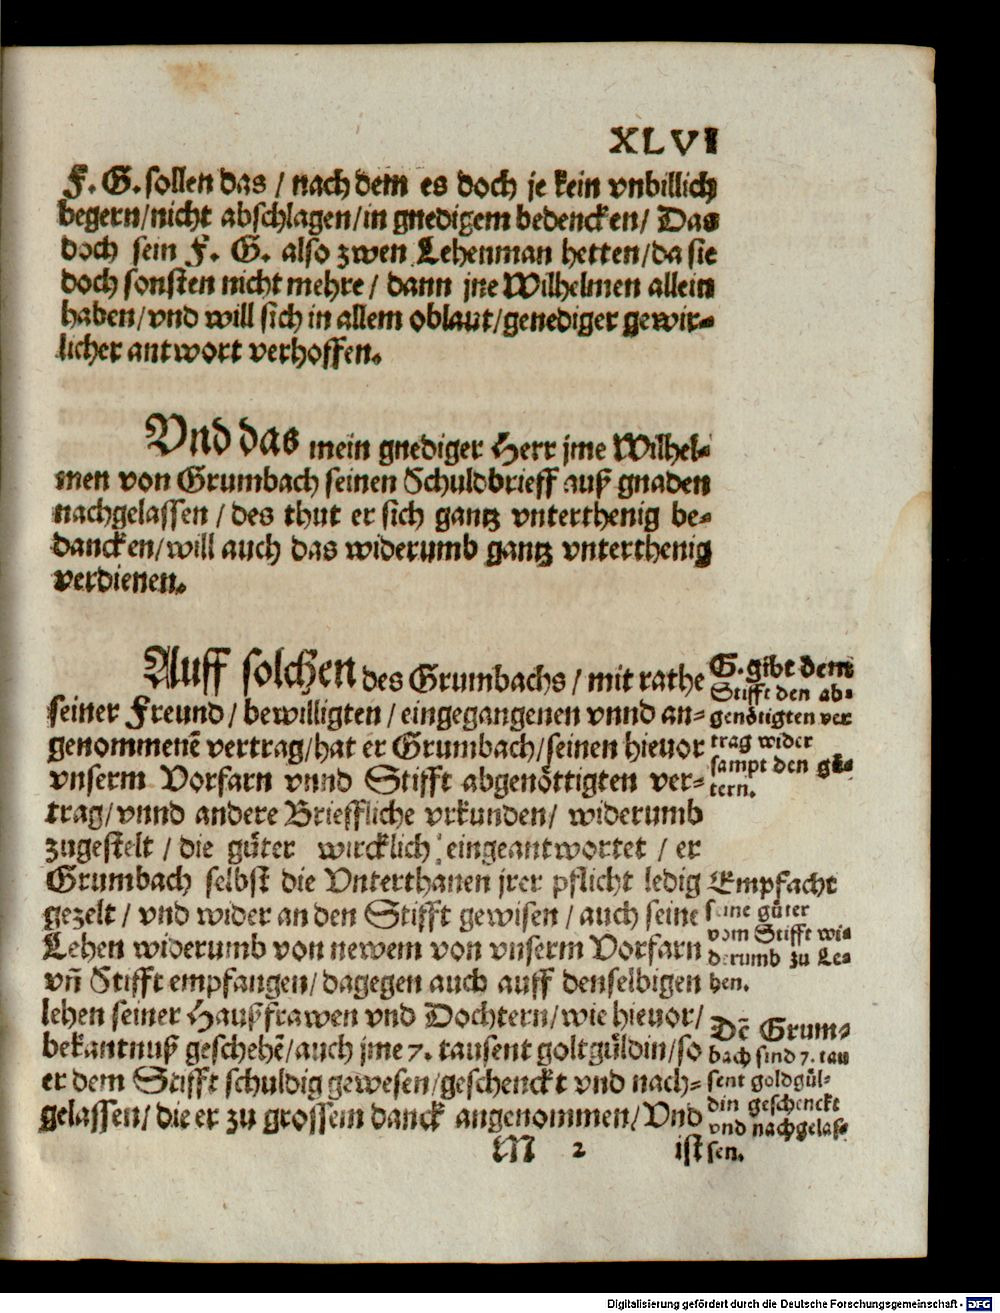 XLVI
F. G. sollen das / nach dem es doch je kein vnbillich
begern/nicht abschlagen/in gnedigem bedencken/ Das
doch sein F. G. also zwen Lehenman hetten/da sie
doch sonsten nicht mehre / dann jne Wilhelmen allein
haben/vnd will sich in allem oblaut/genediger gewir-
licher antwort verhoffen.
Vnd das mein gnediger Herr jme Wilhel-
men von Grumbach seinen Schuldbrieff auß gnaden
nachgelassen / des thut er sich gantz vnterthenig be-
dancken/will auch das widerumb gantz vnterthenig
verdienen.
Auff solchen des Grumbachs / mit rathe
seiner Freund / bewilligten / eingegangenen vnnd an-
genommenē vertrag/hat er Grumbach/seinen hieuor
vnserm Vorfarn vnnd Stifft abgenöttigten ver-
trag/vnnd andere Brieffliche vrkunden/ widerumb
zugestelt / die güter wircklich eingeantwortet / er
Grumbach selbst die Vnterthanen jrer pflicht ledig
gezelt / vnd wider an den Stifft gewisen / auch seine
Lehen widerumb von newem von vnserm Vorfarn
vn̄ Stifft empfangen/dagegen auch auff denselbigen
lehen seiner Haußfrawen vnd Dochtern/wie hieuor/
bekantnuß geschehē/auch jme 7. tausent goltgüldin/so
er dem Stifft schuldig gewesen/geschenckt vnd nach-
gelassen/die er zu grossem danck angenommen/Vnd
M 2 ist
G. gibt dem
Stifft den ab-
genötigten ver
trag wider
sampt den gü-
tern.
Empfacht
seine güter
vom Stifft wi-
derumb zu Le-
hen.
Dē Grum-
bach sind 7. tau
sent goldgül-
din geschenckt
vnd nachgelas-
sen.
Digitalisierung gefördert durch die Deutsche Forschungsgemeinschaft - DFG